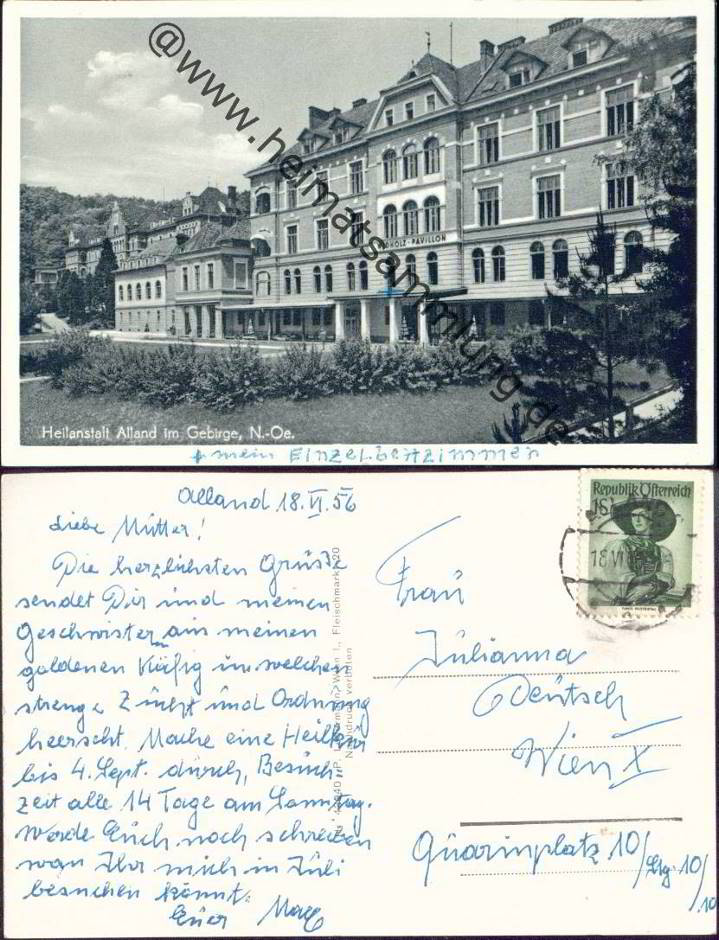 @www.heimatsammlung.de
RHOLZ-PAVILLON
Heilanstalt Alland im Gebirge, N.-Oe.
mein EINZELbettzimmer
Alland 18.VI.56
Liebe Mutter!
Die herzlichsten Grüsse
sendet Dir und meinen
Geschwister aus meinen
goldenen Käfig in welchen
strenge Zucht und Ordnung
heerscht. Mache eine Heilkur
bis 4. Sept. durch, Besuchs-
zeit alle 14 Tage am Samstag.
Werde Euch noch schreiben
wan Ihr mich in Juli
besuchen könnt.
Euer
Wien I., Fleischmarkt 20
Nachdruck verboten
Republik Österreich
1S
18.VI
Frau
Julianna
Deutsch
Wien X
Quarinplatz 10/Stg. 10/10